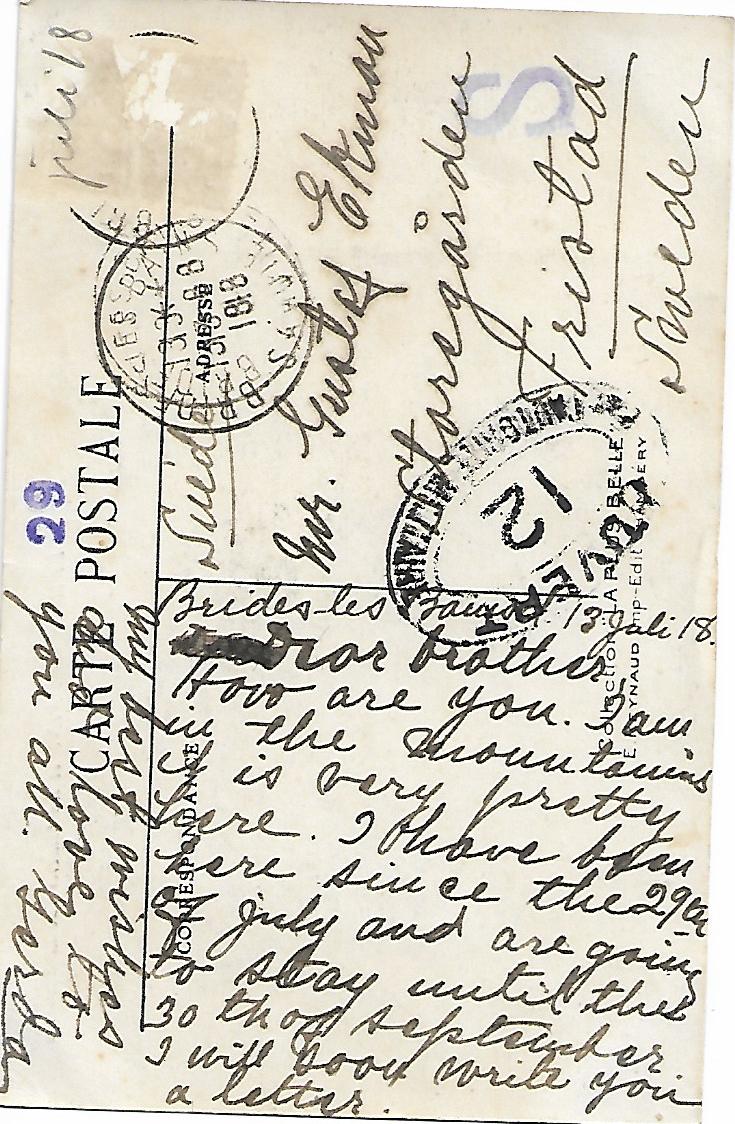 juli 18
CARTE POSTALE
29
ADRESSE
Suède
Mr. Gustaf Ekman
Storegården
Fristad
Sweden
S
12
OUVERT
Collection LA PLUS BELLE
CORRESPONDANCE
Brides-les Bains 13 Juli 18.
Dear brother
How are you. I am
in the mountains
It is very pretty
here. I have been
here since the 29th
of july and are going
to stay until the
30 th of september
I will soon write you
a letter.
My best wishes
and love to
you all. Gerda